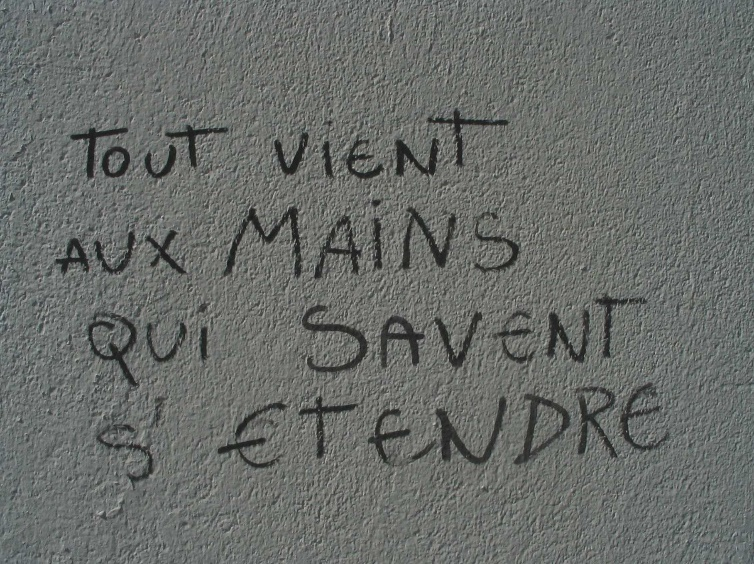 TOUT ViENT
AUX MAiNS
QUi SAVENT
S'ETENDRE